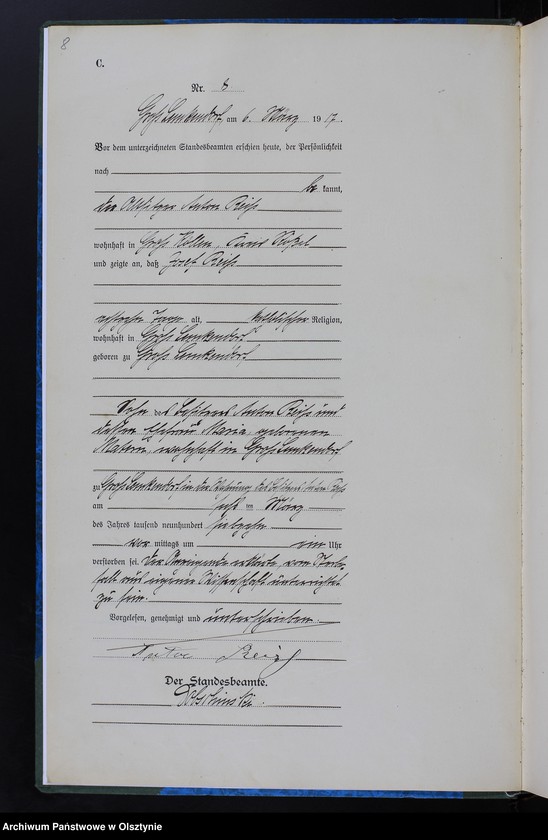 8
C.
Nr. 8
Groß Lemkendorf, am 6. März 1917.
Vor dem unterzeichneten Standesbeamten erschien heute, der Persönlichkeit
nach
be kannt,
der Altsitzer Anton Reiß
wohnhaft in Groß Köllen, Kreis Rößel
und zeigte an, daß Josef Reiß
Tage alt, katholischer Religion,
wohnhaft in Groß Lemkendorf
geboren zu Groß Lemkendorf
Sohn des Besitzers Anton Reiß und
dessen Ehefrau Maria, geborenen
wohnhaft in Groß Lemkendorf
zu Groß Lemkendorf in der Wohnung des Besitzers Anton Reiß
am im März
des Jahres tausend neunhundert siebzehn
vor mittags um ein Uhr
verstorben sei. Der Anzeigende erklärte, vom Sterbe-
fall aus eigener Wissenschaft unterrichtet
zu sein.
Vorgelesen, genehmigt und unterschrieben.
Anton Reiß
Der Standesbeamte.
Archiwum Państwowe w Olsztynie